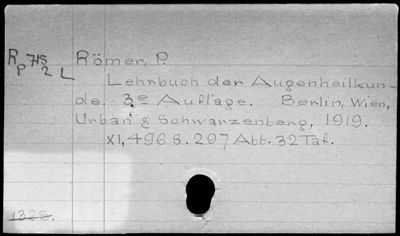 R 715 Römer, P.
P 2 L
Lehrbuch der Augenheilkun-
de. 3e Auflage. Berlin, Wien,
Urban & Schwarzenberg, 1919.
XI, 496 S. 297 Abb. 32 Taf.
1328.